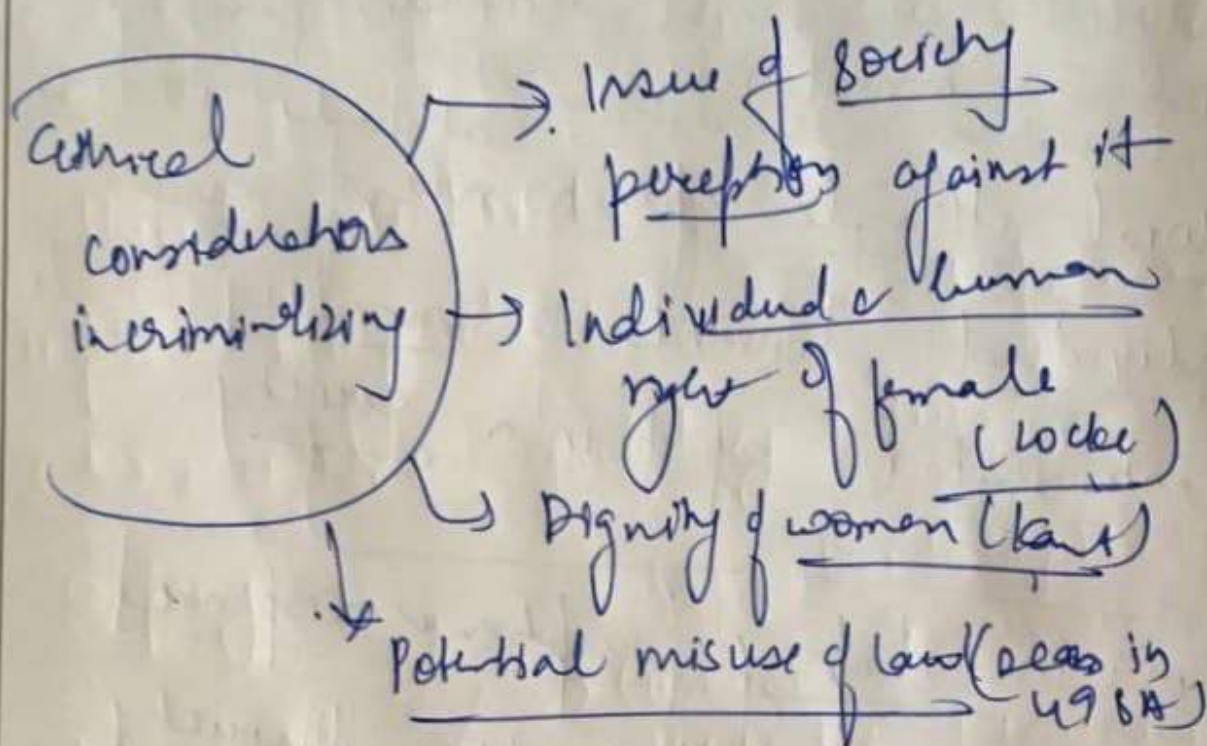 Ethical
considerations
in criminalizing
→ Issue of society
perception against it
→ Individual & human
right of female
(Locke)
→ Dignity of women (Kant)
→ Potential misuse of law (seen in
498A)